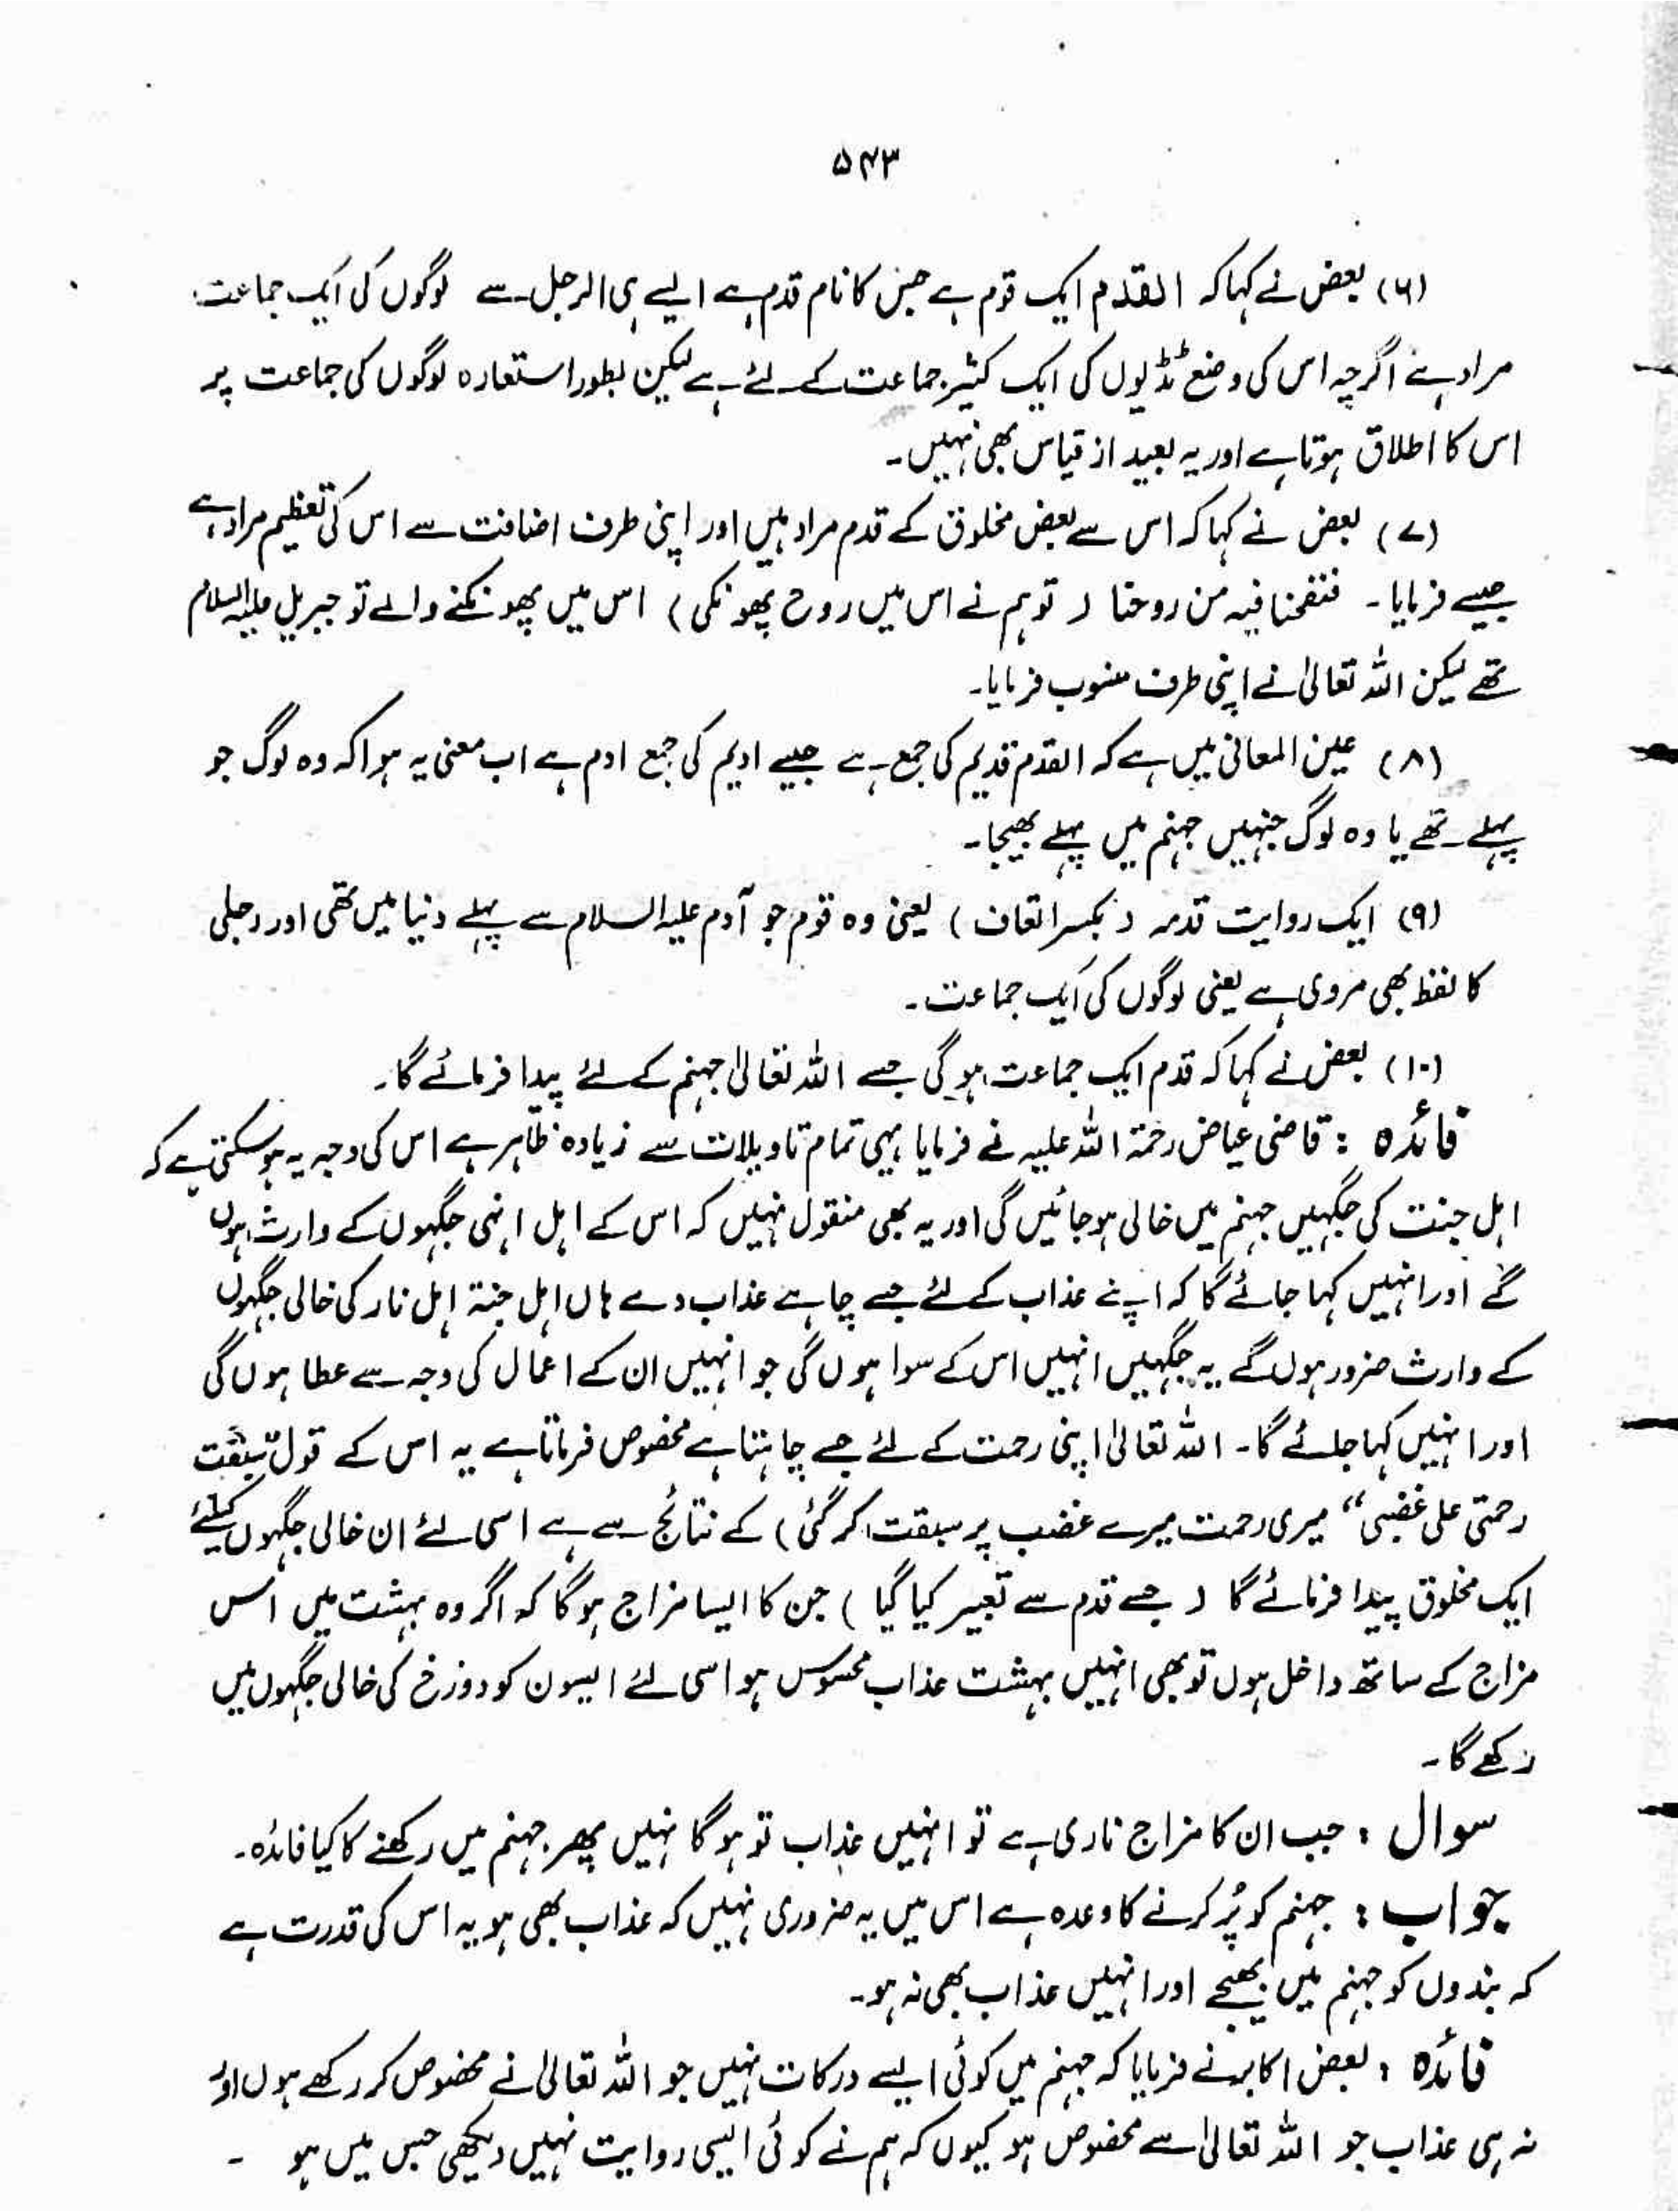 ۵۴۳
(۶) بعض نے کہا کہ القدم ایک قوم ہے جس کا نام قدم ہے ایسے ہی الرجل سے لوگوں کی ایک جماعت
مراد ہے اگرچہ اس کی وضع ٹڈیوں کی ایک کثیر جماعت کے لئے ہے لیکن بطور استعارہ لوگوں کی جماعت پر
اس کا اطلاق ہوتا ہے اور یہ بعید از قیاس بھی نہیں۔
(۷) بعض نے کہا کہ اس سے بعض مخلوق کے قدم مراد ہیں اور اپنی طرف اضافت سے اس کی تعظیم مراد ہے
جیسے فرمایا۔ فنفخنا فیہ من روحنا ( تو ہم نے اس میں روح پھونکی ) اس میں پھونکنے والے تو جبریل علیہ السلام
تھے لیکن اللہ تعالیٰ نے اپنی طرف منسوب فرمایا۔
(۸) عین المعانی میں ہے کہ القدم قدیم کی جمع ہے جیسے ادیم کی جمع ادم ہے اب معنی یہ ہوا کہ وہ لوگ جو
پہلے تھے یا وہ لوگ جنہیں جہنم میں پہلے بھیجا۔
(۹) ایک روایت قدمہ ( بکسر القاف ) یعنی وہ قوم جو آدم علیہ السلام سے پہلے دنیا میں تھی اور رجلی
کا لفظ بھی مروی ہے یعنی لوگوں کی ایک جماعت۔
(۱۰) بعض نے کہا کہ قدم ایک جماعت ہو گی جسے اللہ تعالیٰ جہنم کے لئے پیدا فرمائے گا۔
فائدہ : قاضی عیاض رحمۃ اللہ علیہ نے فرمایا یہی تمام تاویلات سے زیادہ ظاہر ہے اس کی وجہ یہ ہو سکتی ہے کہ
اہل جنت کی جگہیں جہنم میں خالی ہو جائیں گی اور یہ بھی منقول نہیں کہ اس کے اہل اپنی جگہوں کے وارث ہوں
گے اور انہیں کہا جائے گا کہ اپنے عذاب کے لئے جسے چاہے عذاب دے ہاں اہل جنۃ اہل نار کی خالی جگہوں
کے وارث ضرور ہوں گے یہ جگہیں انہیں اس کے سوا ہوں گی جو انہیں ان کے اعمال کی وجہ سے عطا ہوں گی
اور انہیں کہا جائے گا۔ اللہ تعالیٰ اپنی رحمت کے لئے جسے چاہتا ہے مخصوص فرماتا ہے یہ اس کے قول سبقت
رحمتی علی غضبی“ میری رحمت میرے غضب پر سبقت کر گئی ) کے نتائج سے ہے اسی لئے ان خالی جگہوں کیلئے
ایک مخلوق پیدا فرمائے گا ( جسے قدم سے تعبیر کیا گیا ) جن کا ایسا مزاج ہو گا کہ اگر وہ بہشت میں اس
مزاج کے ساتھ داخل ہوں تو بھی انہیں بہشت عذاب محسوس ہو اسی لئے ایسوں کو دوزخ کی خالی جگہوں میں
رکھے گا۔
سوال : جب ان کا مزاج ناری ہے تو انہیں عذاب تو ہو گا نہیں پھر جہنم میں رکھنے کا کیا فائدہ۔
جواب : جہنم کو پُر کرنے کا وعدہ ہے اس میں یہ ضروری نہیں کہ عذاب بھی ہو یہ اس کی قدرت ہے
کہ بندوں کو جہنم میں بھیجے اور انہیں عذاب بھی نہ ہو۔
فائدہ : بعض اکابر نے فرمایا کہ جہنم میں کوئی ایسے درکات نہیں جو اللہ تعالیٰ نے مخصوص کر رکھے ہوں اور
نہ ہی عذاب جو اللہ تعالیٰ سے مخصوص ہو کیوں کہ ہم نے کوئی ایسی روایت نہیں دیکھی جس میں ہو ۔